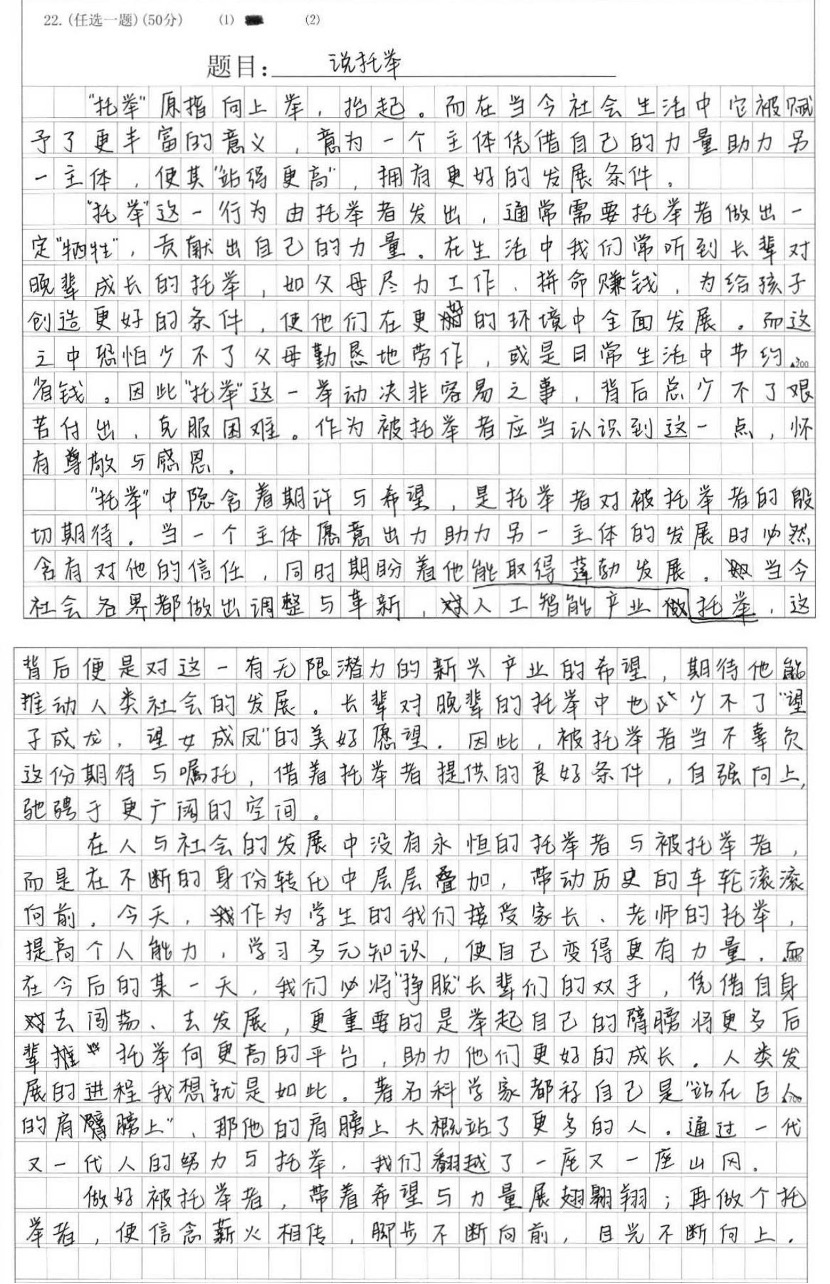 22.(任选一题)(50分) (1) (2)
题目: 说托举
"托举"原指向上举，抬起。而在当今社会生活中它被赋
予了更丰富的意义，意为一个主体凭借自己的力量助力另
一主体，使其"站得更高"，拥有更好的发展条件。
"托举"这一行为由托举者发出，通常需要托举者做出一
定"牺牲"，贡献出自己的力量。在生活中我们常听到长辈对
晚辈成长的托举，如父母尽力工作、拼命赚钱，为给孩子
创造更好的条件，使他们在更好的环境中全面发展。而这
之中恐怕少不了父母勤恳地劳作，或是日常生活中节约
省钱。因此"托举"这一举动决非容易之事，背后总少不了艰
苦付出，克服困难。作为被托举者应当认识到这一点，怀
有尊敬与感恩。
"托举"中隐含着期许与希望，是托举者对被托举者的殷
切期待。当一个主体愿意出力助力另一主体的发展时必然
含有对他的信任，同时期盼着他能取得蓬勃发展。当今
社会各界都做出调整与革新，对人工智能产业做托举，这
背后便是对这一有无限潜力的新兴产业的希望，期待他能
推动人类社会的发展。长辈对晚辈的托举中也少不了"望
子成龙，望女成凤"的美好愿望。因此，被托举者当不辜负
这份期待与嘱托，借着托举者提供的良好条件，自强向上，
驰骋于更广阔的空间。
在人与社会的发展中没有永恒的托举者与被托举者，
而是在不断的身份转化中层层叠加，带动历史的车轮滚滚
向前。今天，作为学生的我们接受家长、老师的托举，
提高个人能力，学习多元知识，使自己变得更有力量。而
在今后的某一天，我们必将"挣脱"长辈们的双手，凭借自身
去闯荡、去发展，更重要的是举起自己的臂膀将更多后
辈托举向更高的平台，助力他们更好的成长。人类发
展的进程我想就是如此。著名科学家都称自己是"站在巨人
的肩膀上"，那他的肩膀上大概站了更多的人。通过一代
又一代人的努力与托举，我们翻越了一座又一座山冈。
做好被托举者，带着希望与力量展翅翱翔；再做个托
举者，使信念薪火相传，脚步不断向前，目光不断向上。